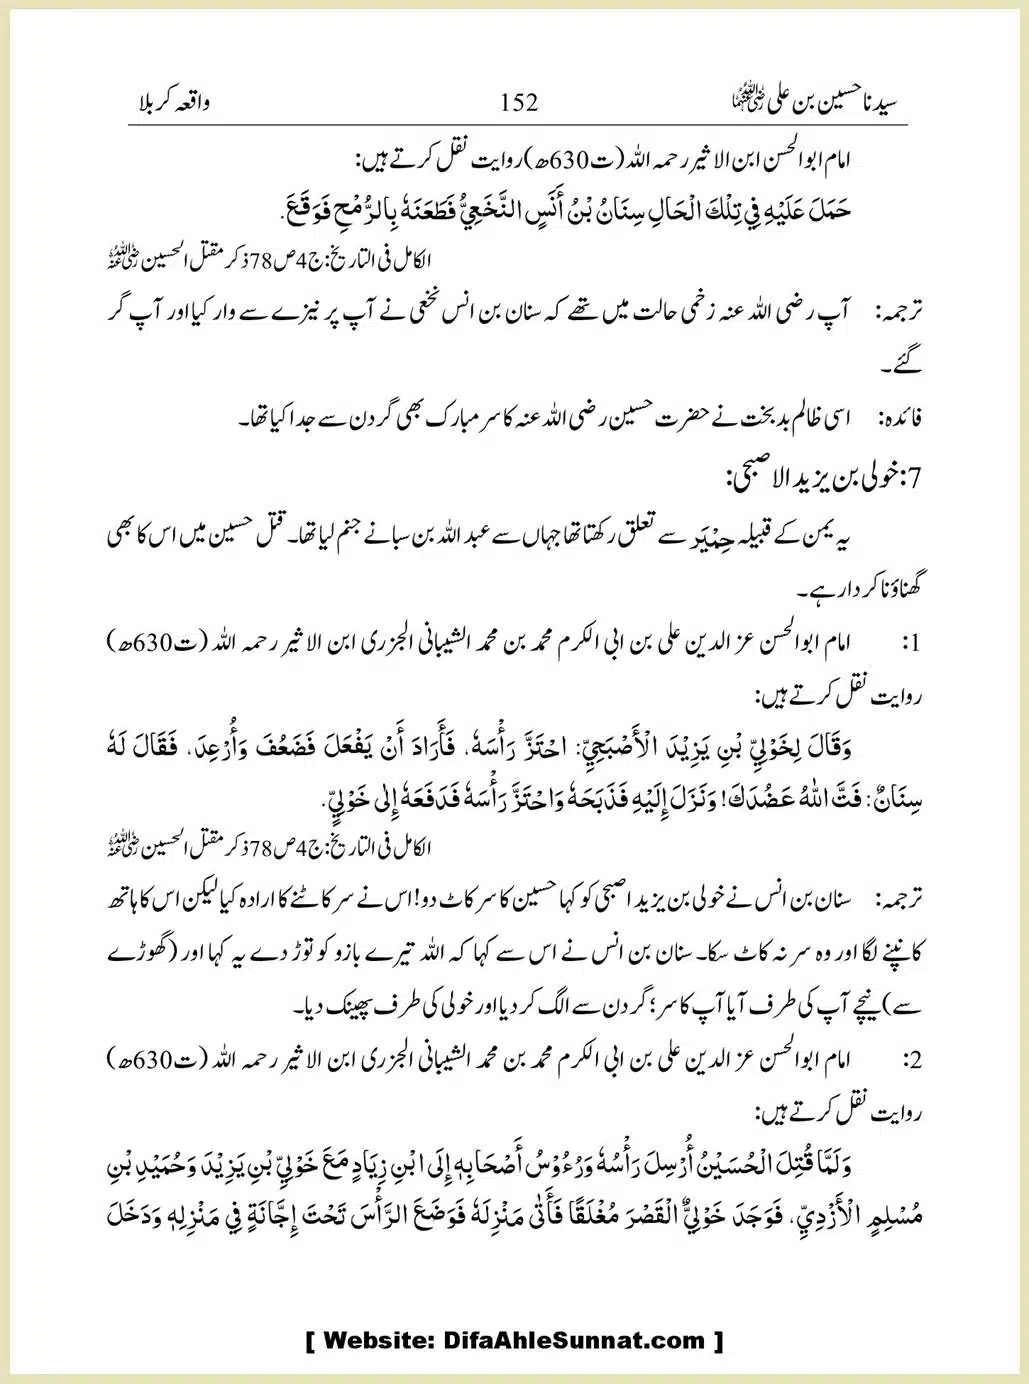 سیدنا حسین بن علی رضی اللہ عنہما 152 واقعہ کربلا
امام ابو الحسن ابن الاثیر رحمہ اللہ (ت630ھ) روایت نقل کرتے ہیں:
حَمَلَ عَلَيْهِ فِي تِلْكَ الْحَالِ سِنَانُ بْنُ أَنَسٍ النَّخَعِيُّ فَطَعَنَهٗ بِالرُّمْحِ فَوَقَعَ.
الکامل فی التاریخ: ج4ص78 ذکر مقتل الحسین رضی اللہ عنہ
ترجمہ: آپ رضی اللہ عنہ زخمی حالت میں تھے کہ سنان بن انس نخعی نے آپ پر نیزے سے وار کیا اور آپ گر
گئے۔
فائدہ: اسی ظالم بدبخت نے حضرت حسین رضی اللہ عنہ کا سر مبارک بھی گردن سے جدا کیا تھا۔
7: خولی بن یزید الاصبحی:
یہ یمن کے قبیلہ حِمْیَر سے تعلق رکھتا تھا جہاں سے عبد اللہ بن سبا نے جنم لیا تھا۔ قتل حسین میں اس کا بھی
گھناؤنا کردار ہے۔
1: امام ابو الحسن عز الدین علی بن ابی الکرم محمد بن محمد الشیبانی الجزری ابن الاثیر رحمہ اللہ (ت630ھ)
روایت نقل کرتے ہیں:
وَقَالَ لِخَوْلِيِّ بْنِ يَزِيْدَ الْأَصْبَحِيِّ: احْتَزَّ رَأْسَهٗ، فَأَرَادَ أَنْ يَفْعَلَ فَضَعُفَ وَأُرْعِدَ، فَقَالَ لَهٗ
سِنَانٌ: فَتَّ اللّٰهُ عَضُدَكَ! وَنَزَلَ إِلَيْهِ فَذَبَحَهٗ وَاحْتَزَّ رَأْسَهٗ فَدَفَعَهٗ إِلٰى خَوْلِيٍّ.
الکامل فی التاریخ: ج4ص78 ذکر مقتل الحسین رضی اللہ عنہ
ترجمہ: سنان بن انس نے خولی بن یزید اصبحی کو کہا حسین کا سر کاٹ دو! اس نے سر کاٹنے کا ارادہ کیا لیکن اس کا ہاتھ
کانپنے لگا اور وہ سر نہ کاٹ سکا۔ سنان بن انس نے اس سے کہا کہ اللہ تیرے بازو کو توڑ دے یہ کہا اور (گھوڑے
سے) نیچے آپ کی طرف آیا آپ کا سر؛ گردن سے الگ کر دیا اور خولی کی طرف پھینک دیا۔
2: امام ابو الحسن عز الدین علی بن ابی الکرم محمد بن محمد الشیبانی الجزری ابن الاثیر رحمہ اللہ (ت630ھ)
روایت نقل کرتے ہیں:
وَلَمَّا قُتِلَ الْحُسَيْنُ أُرْسِلَ رَأْسُهٗ وَرُءُوْسُ أَصْحَابِهٖ إِلَى ابْنِ زِيَادٍ مَعَ خَوْلِيِّ بْنِ يَزِيْدَ وَحُمَيْدِ بْنِ
مُسْلِمٍ الْأَزْدِيِّ، فَوَجَدَ خَوْلِيٌّ الْقَصْرَ مُغْلَقًا فَأَتٰى مَنْزِلَهٗ فَوَضَعَ الرَّأْسَ تَحْتَ إِجَّانَةٍ فِي مَنْزِلِهٖ وَدَخَلَ
[ Website: DifaAhleSunnat.com ]